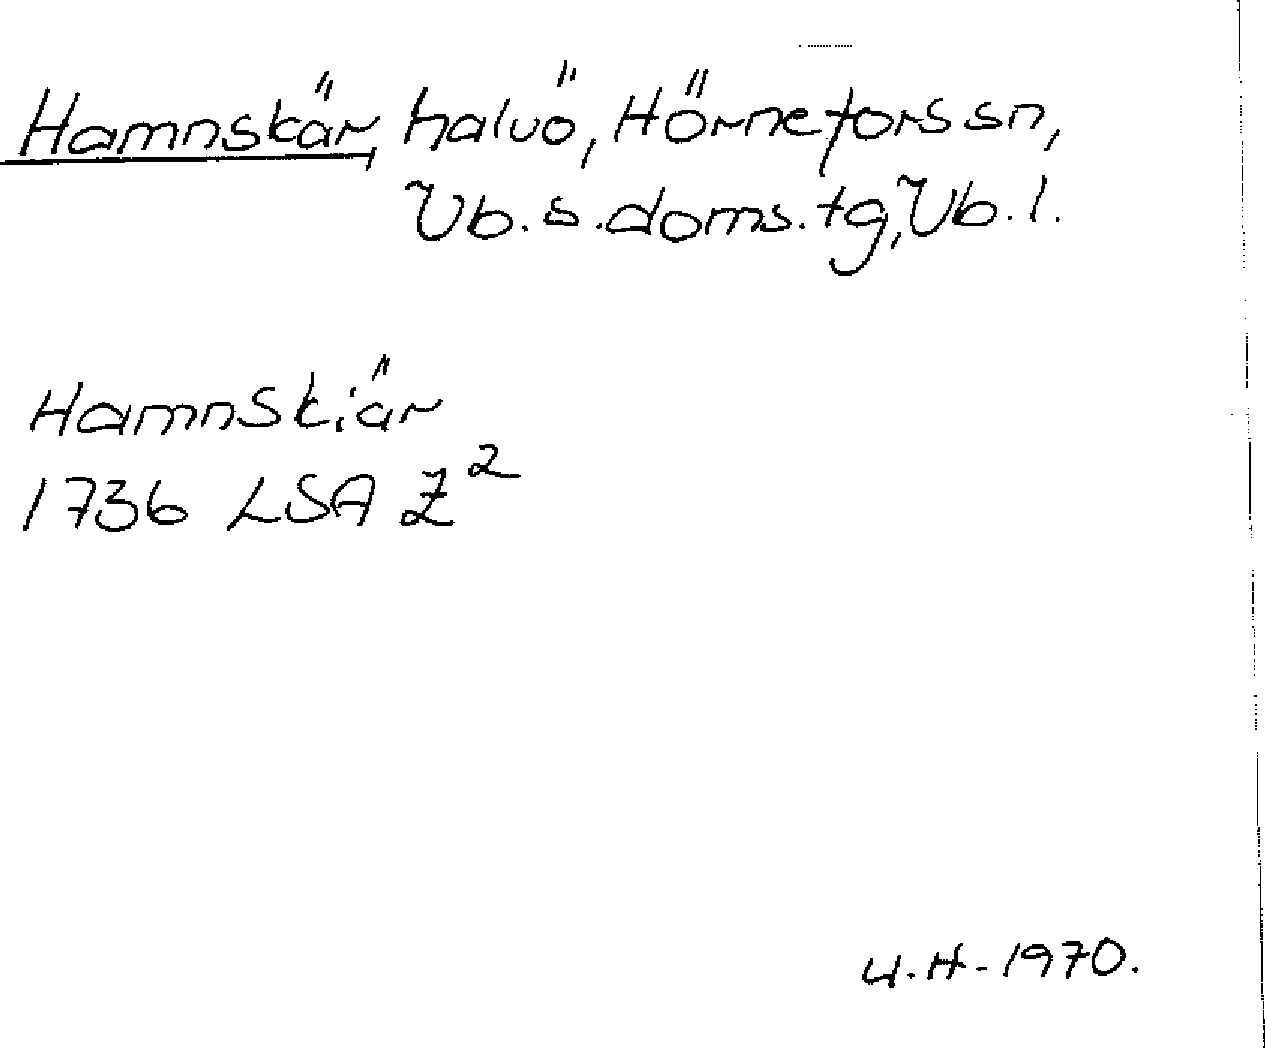 Hamnskär, halvö, Hörnefors sn,
Vb. s. doms. tg, Vb. l.
Hamnskiär
1736 LSA Z²
U.H-1970.